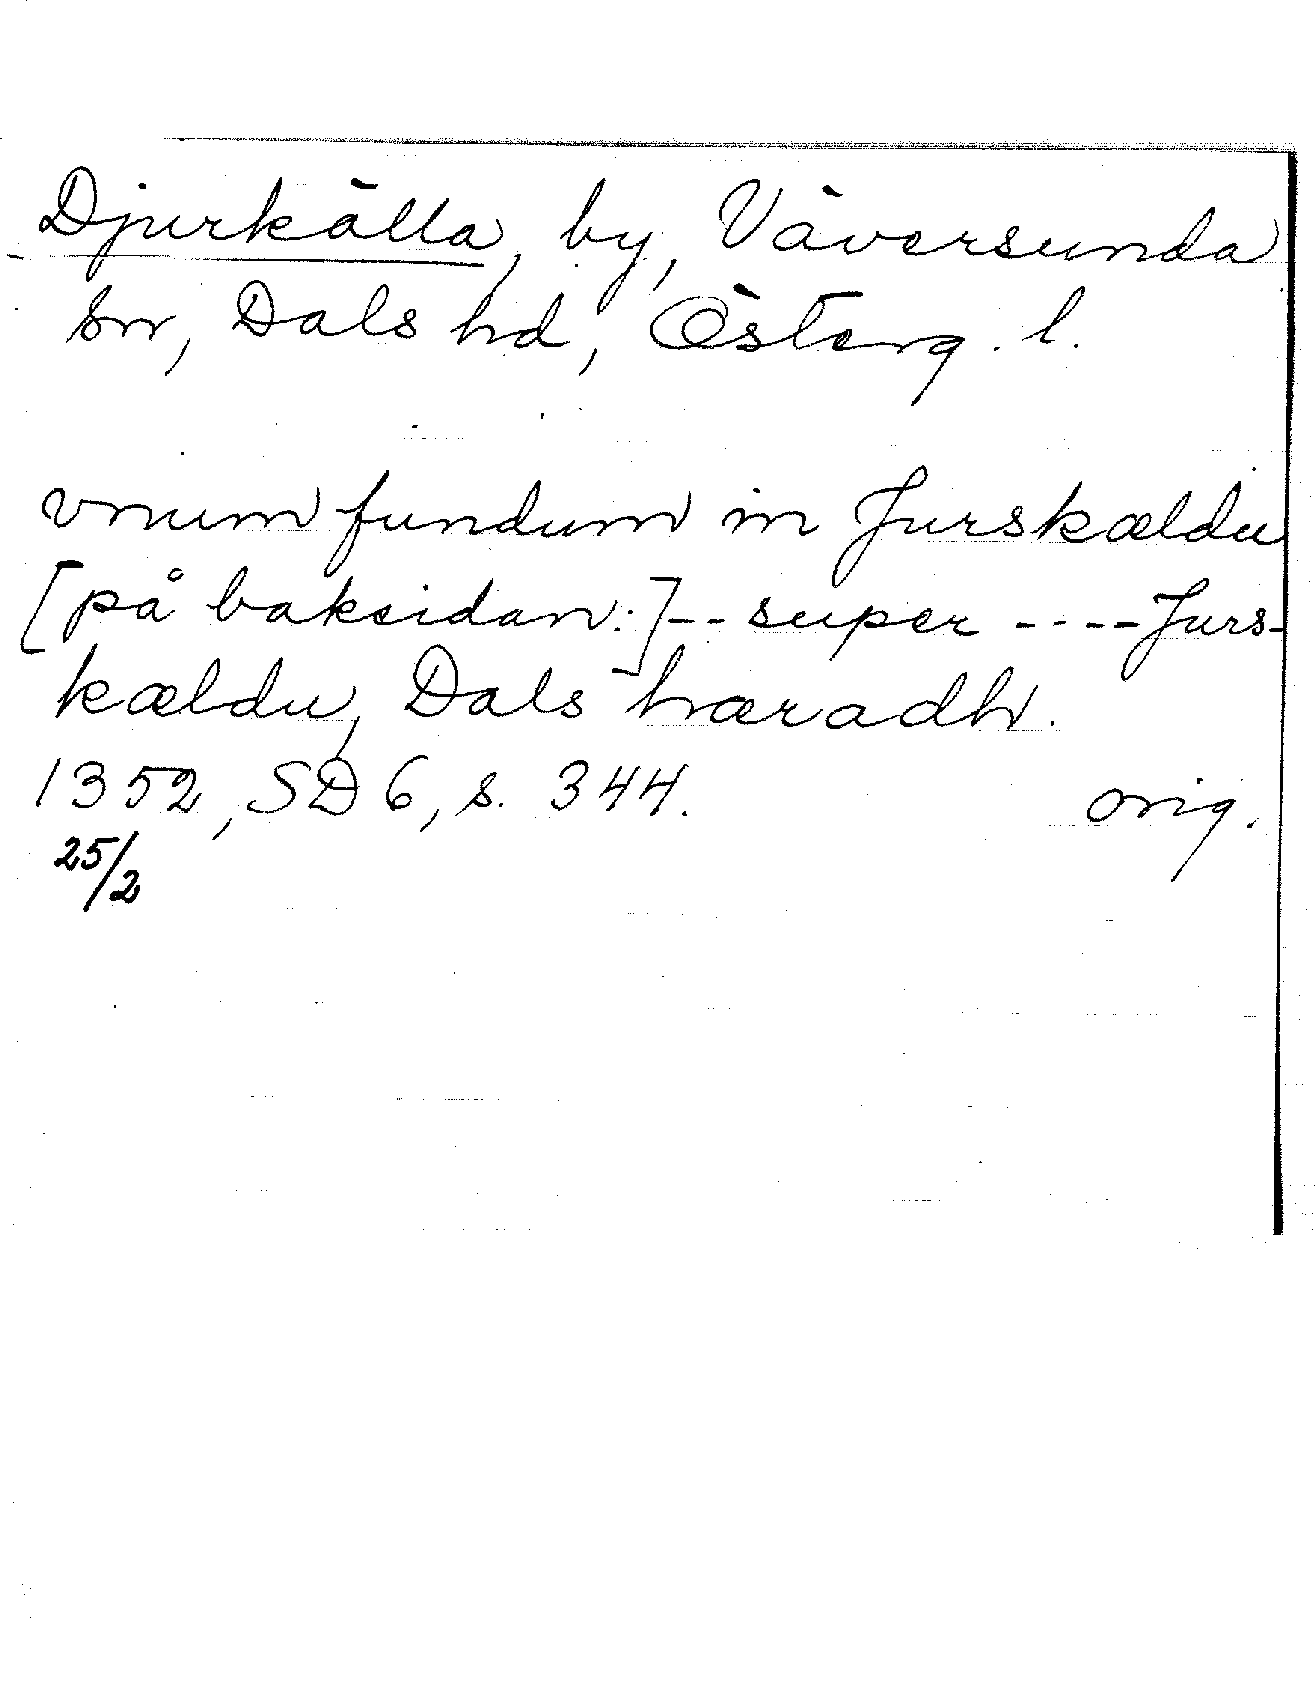 Djurkälla, by, Väversunda
sn, Dals hd, Österg. l.
vnum fundum in Jurskældu
[på baksidan:]-- super ---- Jurs-
kældu, Dals hæradh.
1352, SD 6, s. 344. orig.
25/2